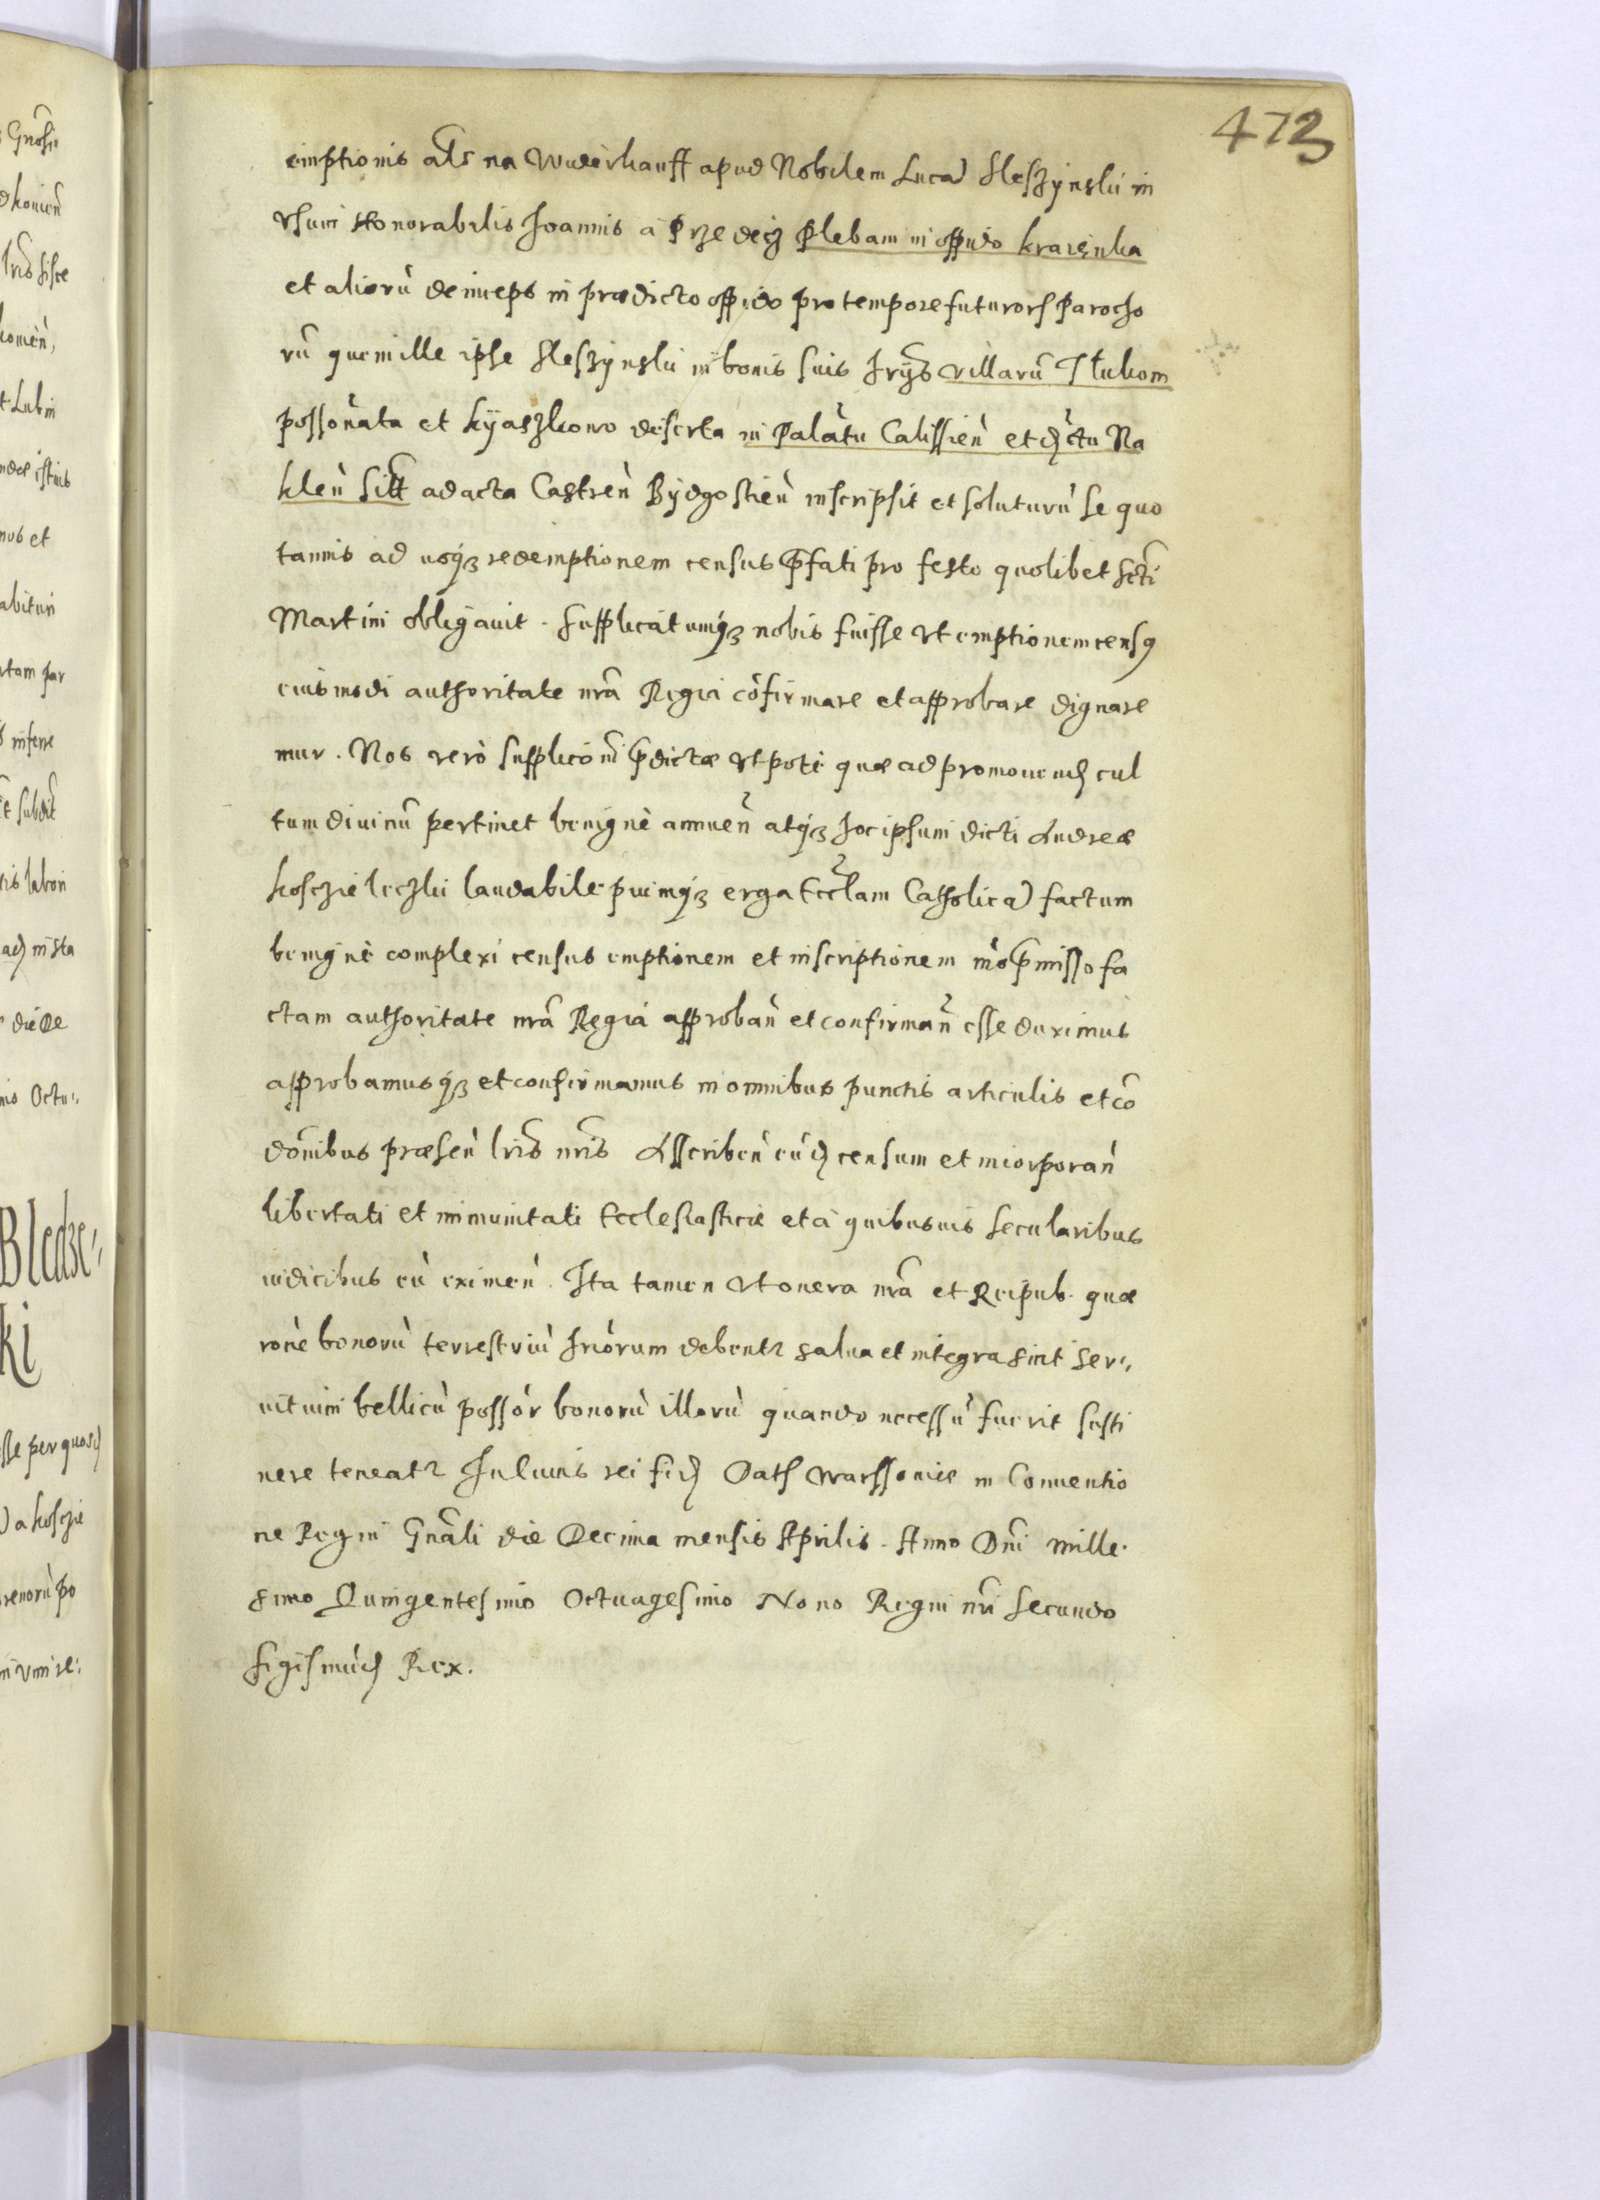 473
emptionis als na Wuderkauff apud Nobilem Lucã Sleszynski in
vsum Honorabilis Joannis a Przedecz Plebani in oppido kraienka
et aliorũ deinceps in prædicto oppido pro tempore futurorũ Parocho
rũ quem ille ipse Sleszynski in bonis suis hrijs villarũ Tlukom
possonata et kÿaszkowo deserta in Palatũ Calissieñ et dictu Na
kleñ Sitt ad acta Castreñ Bÿdgostieñ inscripsit et soluturũ se quo
tannis ad usq3 redemptionem census pfati pro festo quolibet scti
Martini obligauit. Supplicatumq3 nobis fuisse vt emptionem census
eiusmodi authoritate nrã Regia cõfirmare et approbare dignare
mur. Nos verò supplicõni pdictæ vtpote quæ ad promouendũ cul
tum diuinũ pertinet benignè annueñ atq3 hoc ipsum dicti Andreæ
kosczieleczki laudabile piumq3 erga Eccłam Catholicã factum
benignè complexi census emptionem et inscriptionem mõ pmisso fa
ctam authoritate nrã Regia approbañ et confirmañ esse duximus
approbamusq3 et confirmamus in omnibus punctis articulis et cõ
dõnibus præseñ lris nris Asscribeñ eũd censum et incorporañ
libertati et immunitati Ecclesiasticæ et à quibusuis secularibus
iudicibus eũ eximeñ. Ita tamen vt onera nrã et Reipub. quæ
rõne bonorũ terrestriũ hriorum debentr salua et integra sint ser,,
uitium bellicũ possor bonorũ illorũ quando necessũ fuerit susti
nere teneatr In cuius rei fid Dat Warssouiæ in Conuentio
ne Regni Gnãli die Decima mensis Aprilis. Anno Dni Mille.
simo Quingentesimo Octuagesimo Nono Regni nri Secundo
Sigismũd Rex.